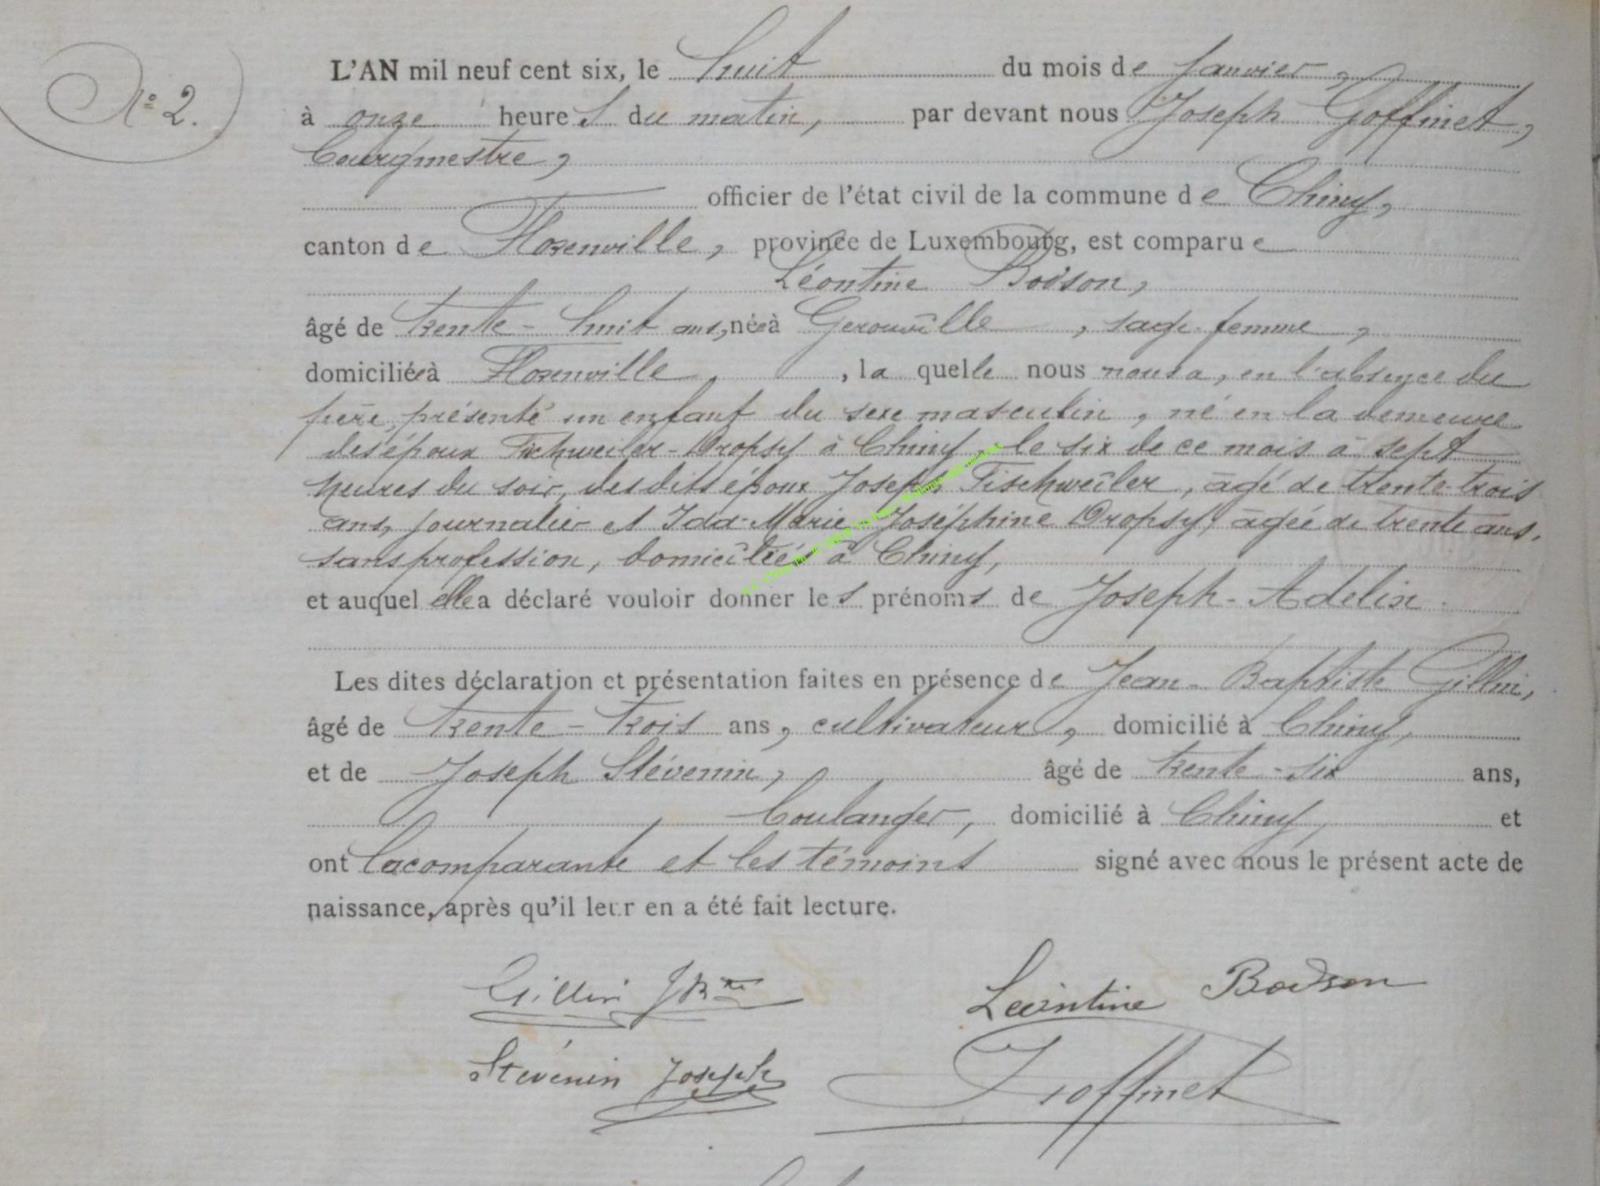 N° 2.
L'AN mil neuf cent six, le huit du mois de Janvier,
à onze heures du matin, par devant nous Joseph Goffinet,
bourgmestre,
officier de l'état civil de la commune de Chiny,
canton de Florenville, province de Luxembourg, est comparue
Léontine Bodson,
âgé de trente-huit ans, née à Gerouville, sage femme,
domiciliée à Florenville, la quelle nous nous a, en l'absence du
père, présenté un enfant du sexe masculin, né en la demeure
des époux Fischweiler-Dropsy à Chiny, le six de ce mois à sept
heures du soir, des dits époux Joseph Fischweiler, âgé de trente-trois
ans, journalier et Ida-Marie Joséphine Dropsy, âgée de trente ans,
sans profession, domiciliés à Chiny,
et auquel elle a déclaré vouloir donner les prénoms de Joseph-Adelin.
Les dites déclaration et présentation faites en présence de Jean-Baptiste Gillin,
âgé de trente-trois ans, cultivateur, domicilié à Chiny,
et de Joseph Stévenin, âgé de trente-six ans,
boulanger, domicilié à Chiny, et
ont la comparante et les témoins signé avec nous le présent acte de
naissance, après qu'il leur en a été fait lecture.
Gillin JBte Léontine Bodson
Stévenin Joseph JGoffinet